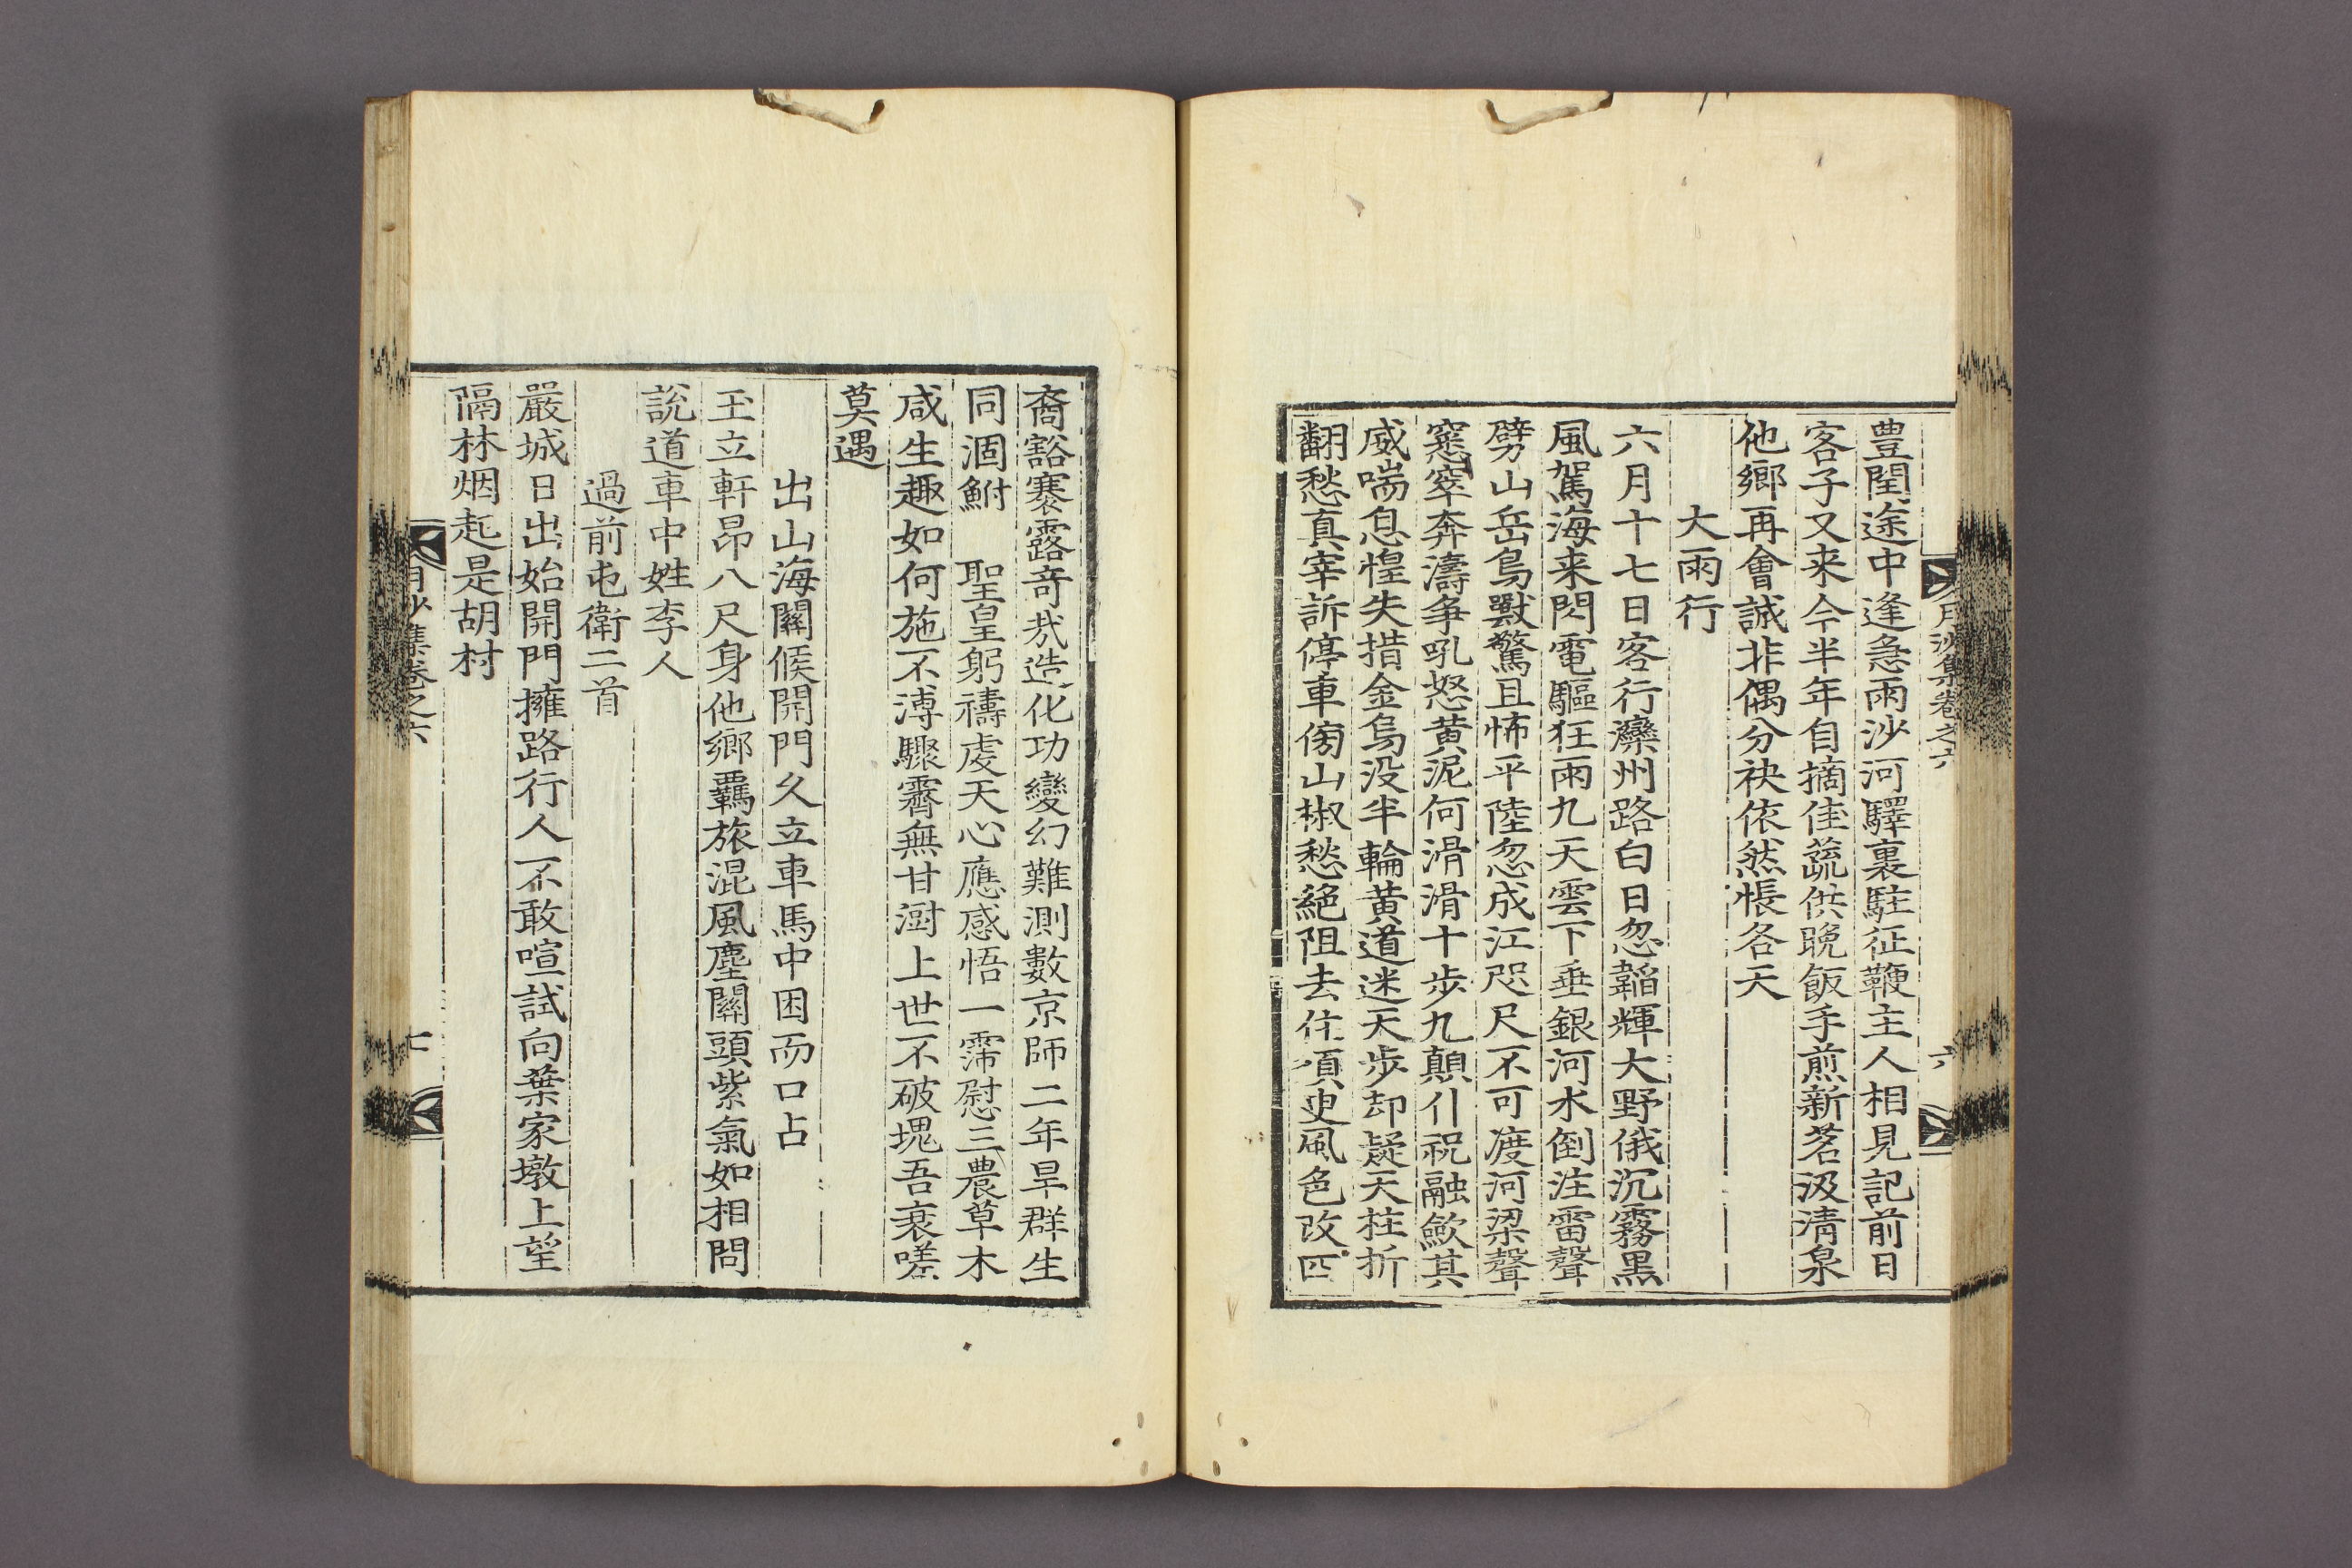 月沙集卷之六
六
豊閏途中逢急雨沙河驛裏駐征鞭主人相見記前日
客子又来今半年自摘佳蔬供晚飯手煎新茗汲淸泉
他鄉再會誠非偶分袂依然悵各天
大雨行
六月十七日客行灤州路白日忽韜輝大野俄沉霧黑
風駕海来閃電驅狂雨九天雲下垂銀河水倒注雷聲
劈山岳鳥獸驚且怖平陸忽成江咫尺不可渡河梁聲
窸窣奔濤爭吼怒黃泥何滑滑十步九顚仆祝融歛其
威喘息惶失措金烏没半輪黃道迷天步却疑天柱折
翻愁眞宰訴停車傍山椒愁絶阻去住須臾風色改四
裔豁褰露竒㦲造化功變幻難測數京師二年旱群生
同涸鮒　聖皇躬禱䖍天心應感悟一霈慰三農草木
咸生趣如何施不溥驟霽無甘澍上世不破塊吾衰嗟
莫遇
出山海關候開門久立車馬中困而口占
玉立軒昂八尺身他鄉羈旅混風塵關頭紫氣如相問
說道車中姓李人
過前屯衛二首
嚴城日出始開門擁路行人不敢喧試向葉家墩上望
隔林烟起是胡村
月沙集卷之六
七